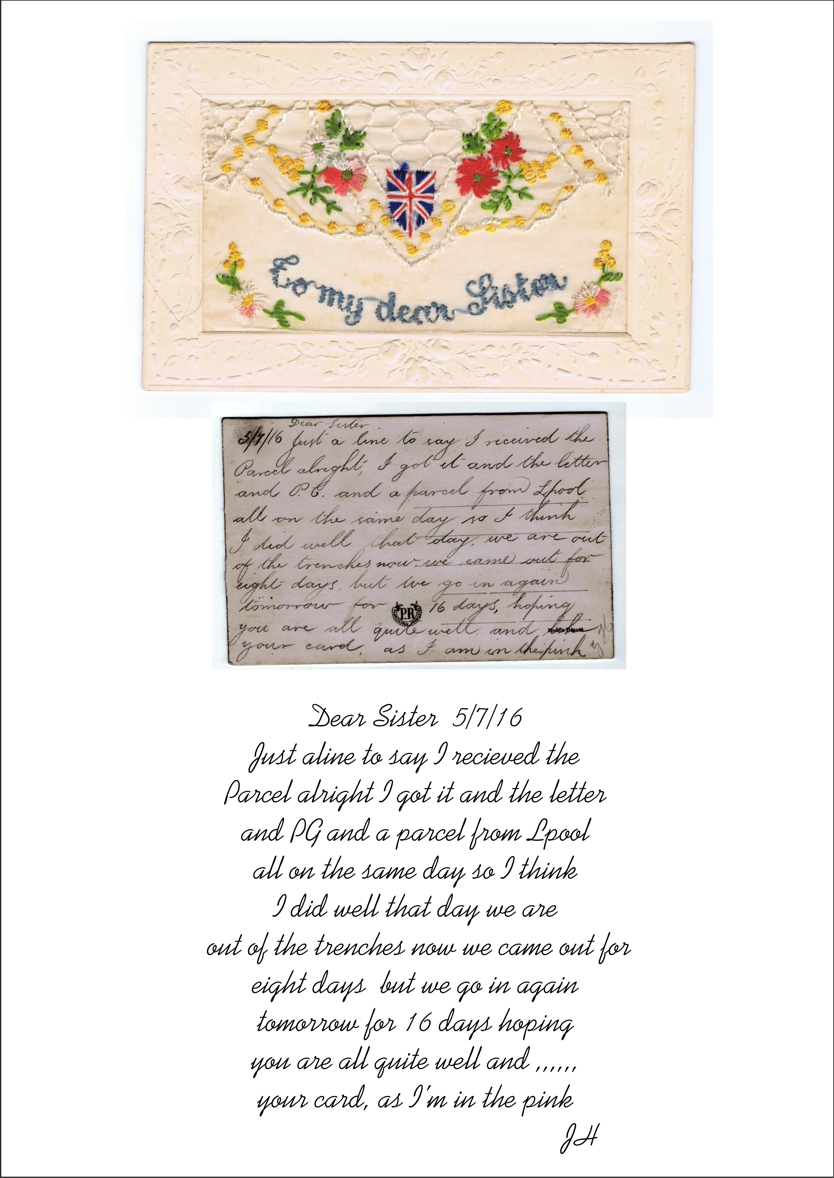 To my dear Sister
Dear Sister
5/7/16 Just a line to say I received the
Parcel alright, I got it and the letter
and P.C. and a parcel from Lpool
all on the same day so I think
I did well that day. we are out
of the trenches now we came out for
eight days, but we go in again
tomorrow for 16 days, hoping
PR
you are all quite well and
your card, as I am in the pink
Dear Sister 5/7/16
Just aline to say I recieved the
Parcel alright I got it and the letter
and PG and a parcel from Lpool
all on the same day so I think
I did well that day we are
out of the trenches now we came out for
eight days but we go in again
tomorrow for 16 days hoping
you are all quite well and ,,,,,,
your card, as I'm in the pink
JH